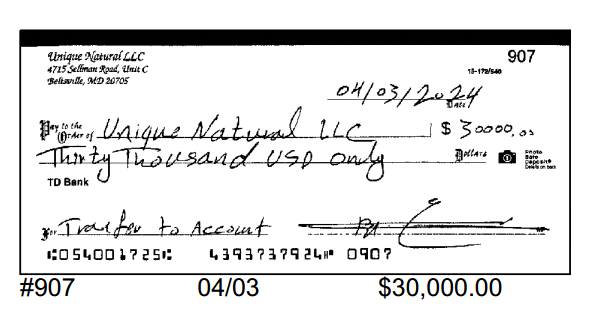 Unique Natural LLC 907
4715 Sellman Road, Unit C 15-172/540
Beltsville, MD 20705
04/03/2024
Date
Pay to the
Order of Unique Natural LLC $ 30000.00
Thirty Thousand USD only Dollars Photo Safe Deposit® Details on back
TD Bank
For Transfer to Account
⑆054001725⑆ 4393737924⑈ 0907
#907 04/03 $30,000.00